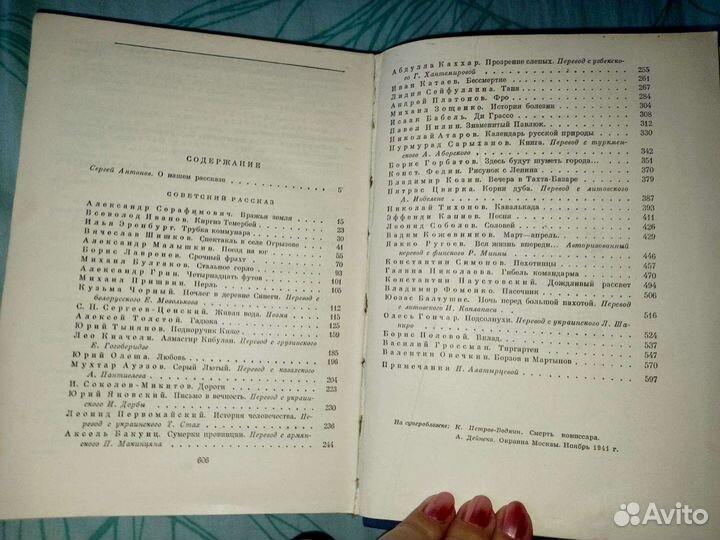 СОДЕРЖАНИЕ
Сергей Антонов. О нашем рассказе 5
СОВЕТСКИЙ РАССКАЗ
Александр Серафимович. Вражья земля 15
Всеволод Иванов. Киргиз Темербей 23
Илья Эренбург. Трубка коммунара 30
Вячеслав Шишков. Спектакль в селе Огрызове 41
Александр Малышкин. Поезд на юг 55
Борис Лавренев. Срочный фрахт 70
Михаил Булгаков. Стальное горло 93
Александр Грин. Четырнадцать футов 101
Михаил Пришвин. Нерль 105
Кузьма Чорный. Ночлег в деревне Синеги. Перевод с
белорусского Е. Мозолькова 112
С. Н. Сергеев-Ценский. Живая вода. Поэма 115
Алексей Толстой. Гадюка 125
Юрий Тынянов. Подпоручик Киже 159
Лео Киачели. Алмасгир Кибулан. Перевод с грузинского
Е. Гогоберидзе 185
Юрий Олеша. Любовь 196
Мухтар Ауэзов. Серый Лютый. Перевод с казахского
А. Пантиелева 204
И. Соколов-Микитов. Дороги 223
Юрий Яновский. Письмо в вечность. Перевод с украин-
ского И. Дорбы 230
Леонид Первомайский. История человечества. Пе-
ревод с украинского Т. Стах 236
Аксель Бакунц. Сумерки провинции. Перевод с армян-
ского П. Макинцяна 244
606
Абдулла Каххар. Прозрение слепых. Перевод с узбекско-
го Г. Хантемировой 255
Иван Катаев. Бессмертие 261
Лидия Сейфуллина. Таня 267
Андрей Платонов. Фро 284
Михаил Зощенко. История болезни 304
Исаак Бабель. Ди Грассо 308
Павел Нилин. Знаменитый Павлюк 312
Николай Атаров. Календарь русской природы 330
Нурмурад Сарыханов. Книга. Перевод с туркмен-
ского А. Аборского 342
Борис Горбатов. Здесь будут шуметь города... 351
Конст. Федин. Рисунок с Ленина 371
Владимир Козин. Вечера в Тахта-Базаре 379
Пятрас Цвирка. Корни дуба. Перевод с литовского
А. 387
Николай Тихонов. Кавалькада 393
Эффенди Капиев. Песня 411
Леонид Соболев. Соловей 426
Вадим Кожевников. Март—апрель 429
Яакко Ругоев. Вся жизнь впереди... Авторизованный
перевод с финского Р. Минны 446
Константин Симонов. Пехотинцы 457
Галина Николаева. Гибель командарма 466
Константин Паустовский. Дождливый рассвет 494
Владимир Фоменко. Пасечник 506
Юозас Балтушис. Ночь перед большой пахотой. Перевод
с литовского И. Капланаса 516
Олесь Гончар. Подсолнухи. Перевод с украинского Л. Ша-
пиро 524
Борис Полевой. Вклад 537
Василий Гроссман. Тиргартен 547
Валентин Овечкин. Борзов и Мартынов 570
Примечания Н. Алатырцевой 597
На суперобложке: К. Петров-Водкин. Смерть комиссара.
А. Дейнека. Окраина Москвы. Ноябрь 1941 г.
Avito